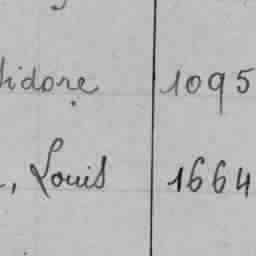 idore 1095
, Louis 1664